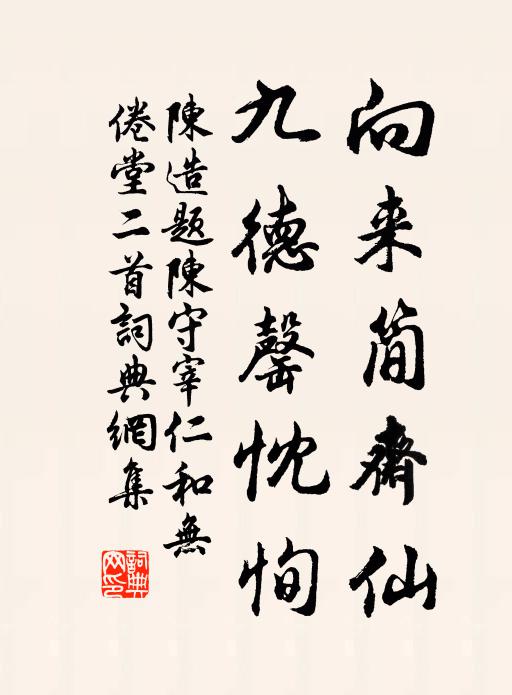 向来简齋仙
九德罄忱恂
陳造題陳守宰仁和無
倦堂二首詞典網集
詞典网印